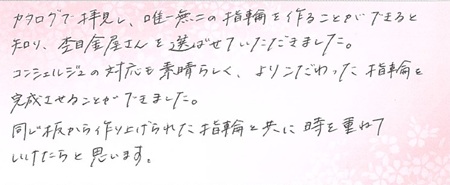 カタログで拝見し、唯一無二の指輪を作ることができると
知り、杢目金屋さんを選ばせていただきました。
コンシェルジュの対応も素晴らしく、よりこだわった指輪を
完成させることができました。
同じ板から作り上げられた指輪と共に時を重ねて
いけたらと思います。